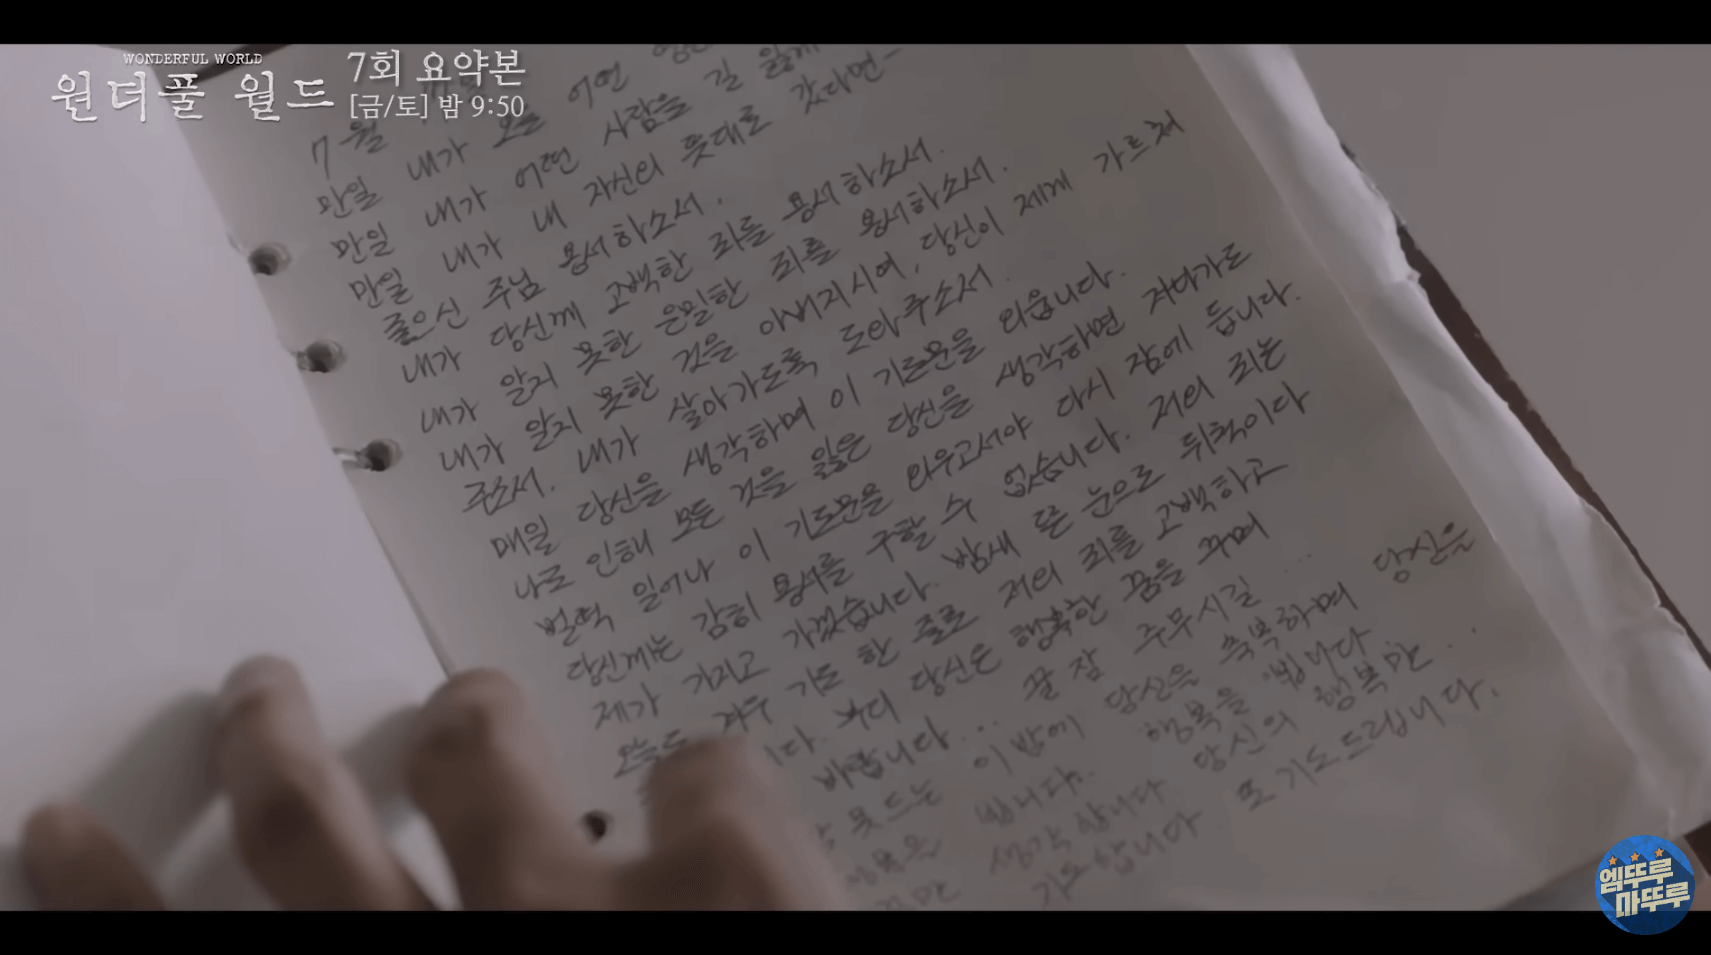 WONDERFUL WORLD
원더풀 월드
7회 요약본
[금/토] 밤 9:50
7월
만일 내가 오늘 어떤
만일 내가 어떤 사람을 길 잃게
만일 내가 내 자신의 뜻대로 갔다면-
좋으신 주님 용서하소서.
내가 당신께 고백한 죄를 용서하소서.
내가 알지 못한 은밀한 죄를 용서하소서.
내가 알지 못한 것을 아버지시여, 당신이 제게 가르쳐
주소서. 내가 살아가도록 도와주소서.
매일 당신을 생각하며 이 기도문을 외웁니다.
나로 인해 모든 것을 잃은 당신을 생각하면 자다가도
벌떡 일어나 이 기도문을 외우고서야 다시 잠에 듭니다.
당신께는 감히 용서를 구할 수 없습니다. 저의 죄는
제가 가지고 가겠습니다. 밤새 뜬 눈으로 뒤척이다
오늘도 겨우 기도 한 줄로 저의 죄를 고백하고
다. 부디 당신은 행복한 꿈을 꾸며
바랍니다... 잘 잠 주무시길...
못 드는 이 밤에 당신을 축복하며 당신을
빕니다. 행복을 빕니다
생각합니다 당신의 행복만..
기도합니다 또 기도드립니다.
엠뚜루
마뚜루